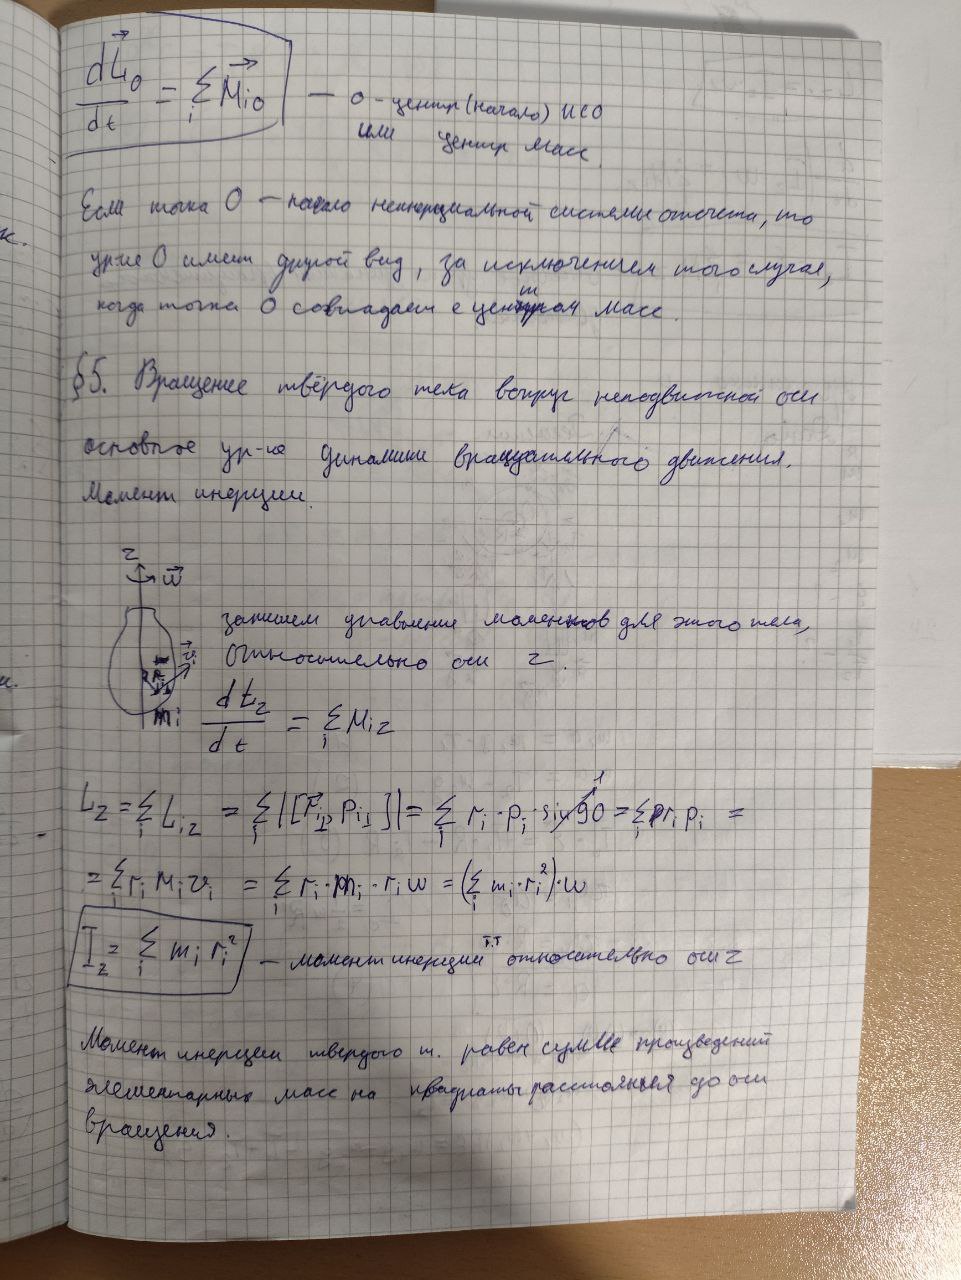 dL⃗₀/dt = Σᵢ M⃗ᵢ₀ — о - центр (начало) ИСО
или центр масс.
Если точка О — начало неинерциальной системы отсчета, то
ур-ие О имеет другой вид, за исключением того случая,
когда точка О совпадает с центром масс.
§5. Вращение твёрдого тела вокруг неподвижной оси
основное ур-ие динамики вращательного движения.
Момент инерции.
z
ω⃗
запишем уравнения моментов для этого тела,
v⃗ᵢ
относительно оси z.
rᵢ
mᵢ
dL_z/dt = Σᵢ Mᵢz
L_z = Σᵢ Lᵢz = Σᵢ |[r⃗ᵢ⊥ pᵢ⊥]| = Σᵢ rᵢ · pᵢ · sin 90 = Σᵢ rᵢ pᵢ =
1
= Σᵢ rᵢ mᵢ vᵢ = Σᵢ rᵢ · mᵢ · rᵢ ω = (Σᵢ mᵢ · rᵢ²) · ω
I_z = Σᵢ mᵢ rᵢ² — момент инерции т.т относительно оси z
Момент инерции твердого т. равен сумме произведений
элементарных масс на квадраты расстояния до оси
вращения.